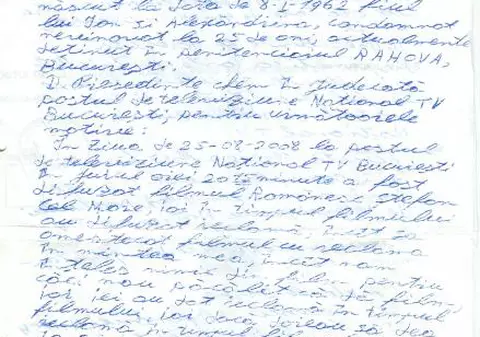 născut la data de 8-1-1962 fiul
lui Ion si Alexandrina, condamnat
nereincorat la 25 de ani, actualmente
detinut în penitenciarul RAHOVA,
București.
D. Presedinte chem în judecată
postul de televiziune National TV
București, pentru următoarele
motive:
În ziua de 25-08-2008 la postul
de televiziune National TV București
în jurul orei 20 15 minute a fost
difuzat filmul Românesc Stefan
cel Mare, iar în timpul filmului
au difuzat reclamă, încît sa
amestecat filmul cu reclama
în mintea mea încît nam
înteles nimic din film, pentru
că ei mau păcălit ca dă film,
iar ei au dat reclamă în timpul
filmului, iar dacă voreau să dea
reclamă în timpul